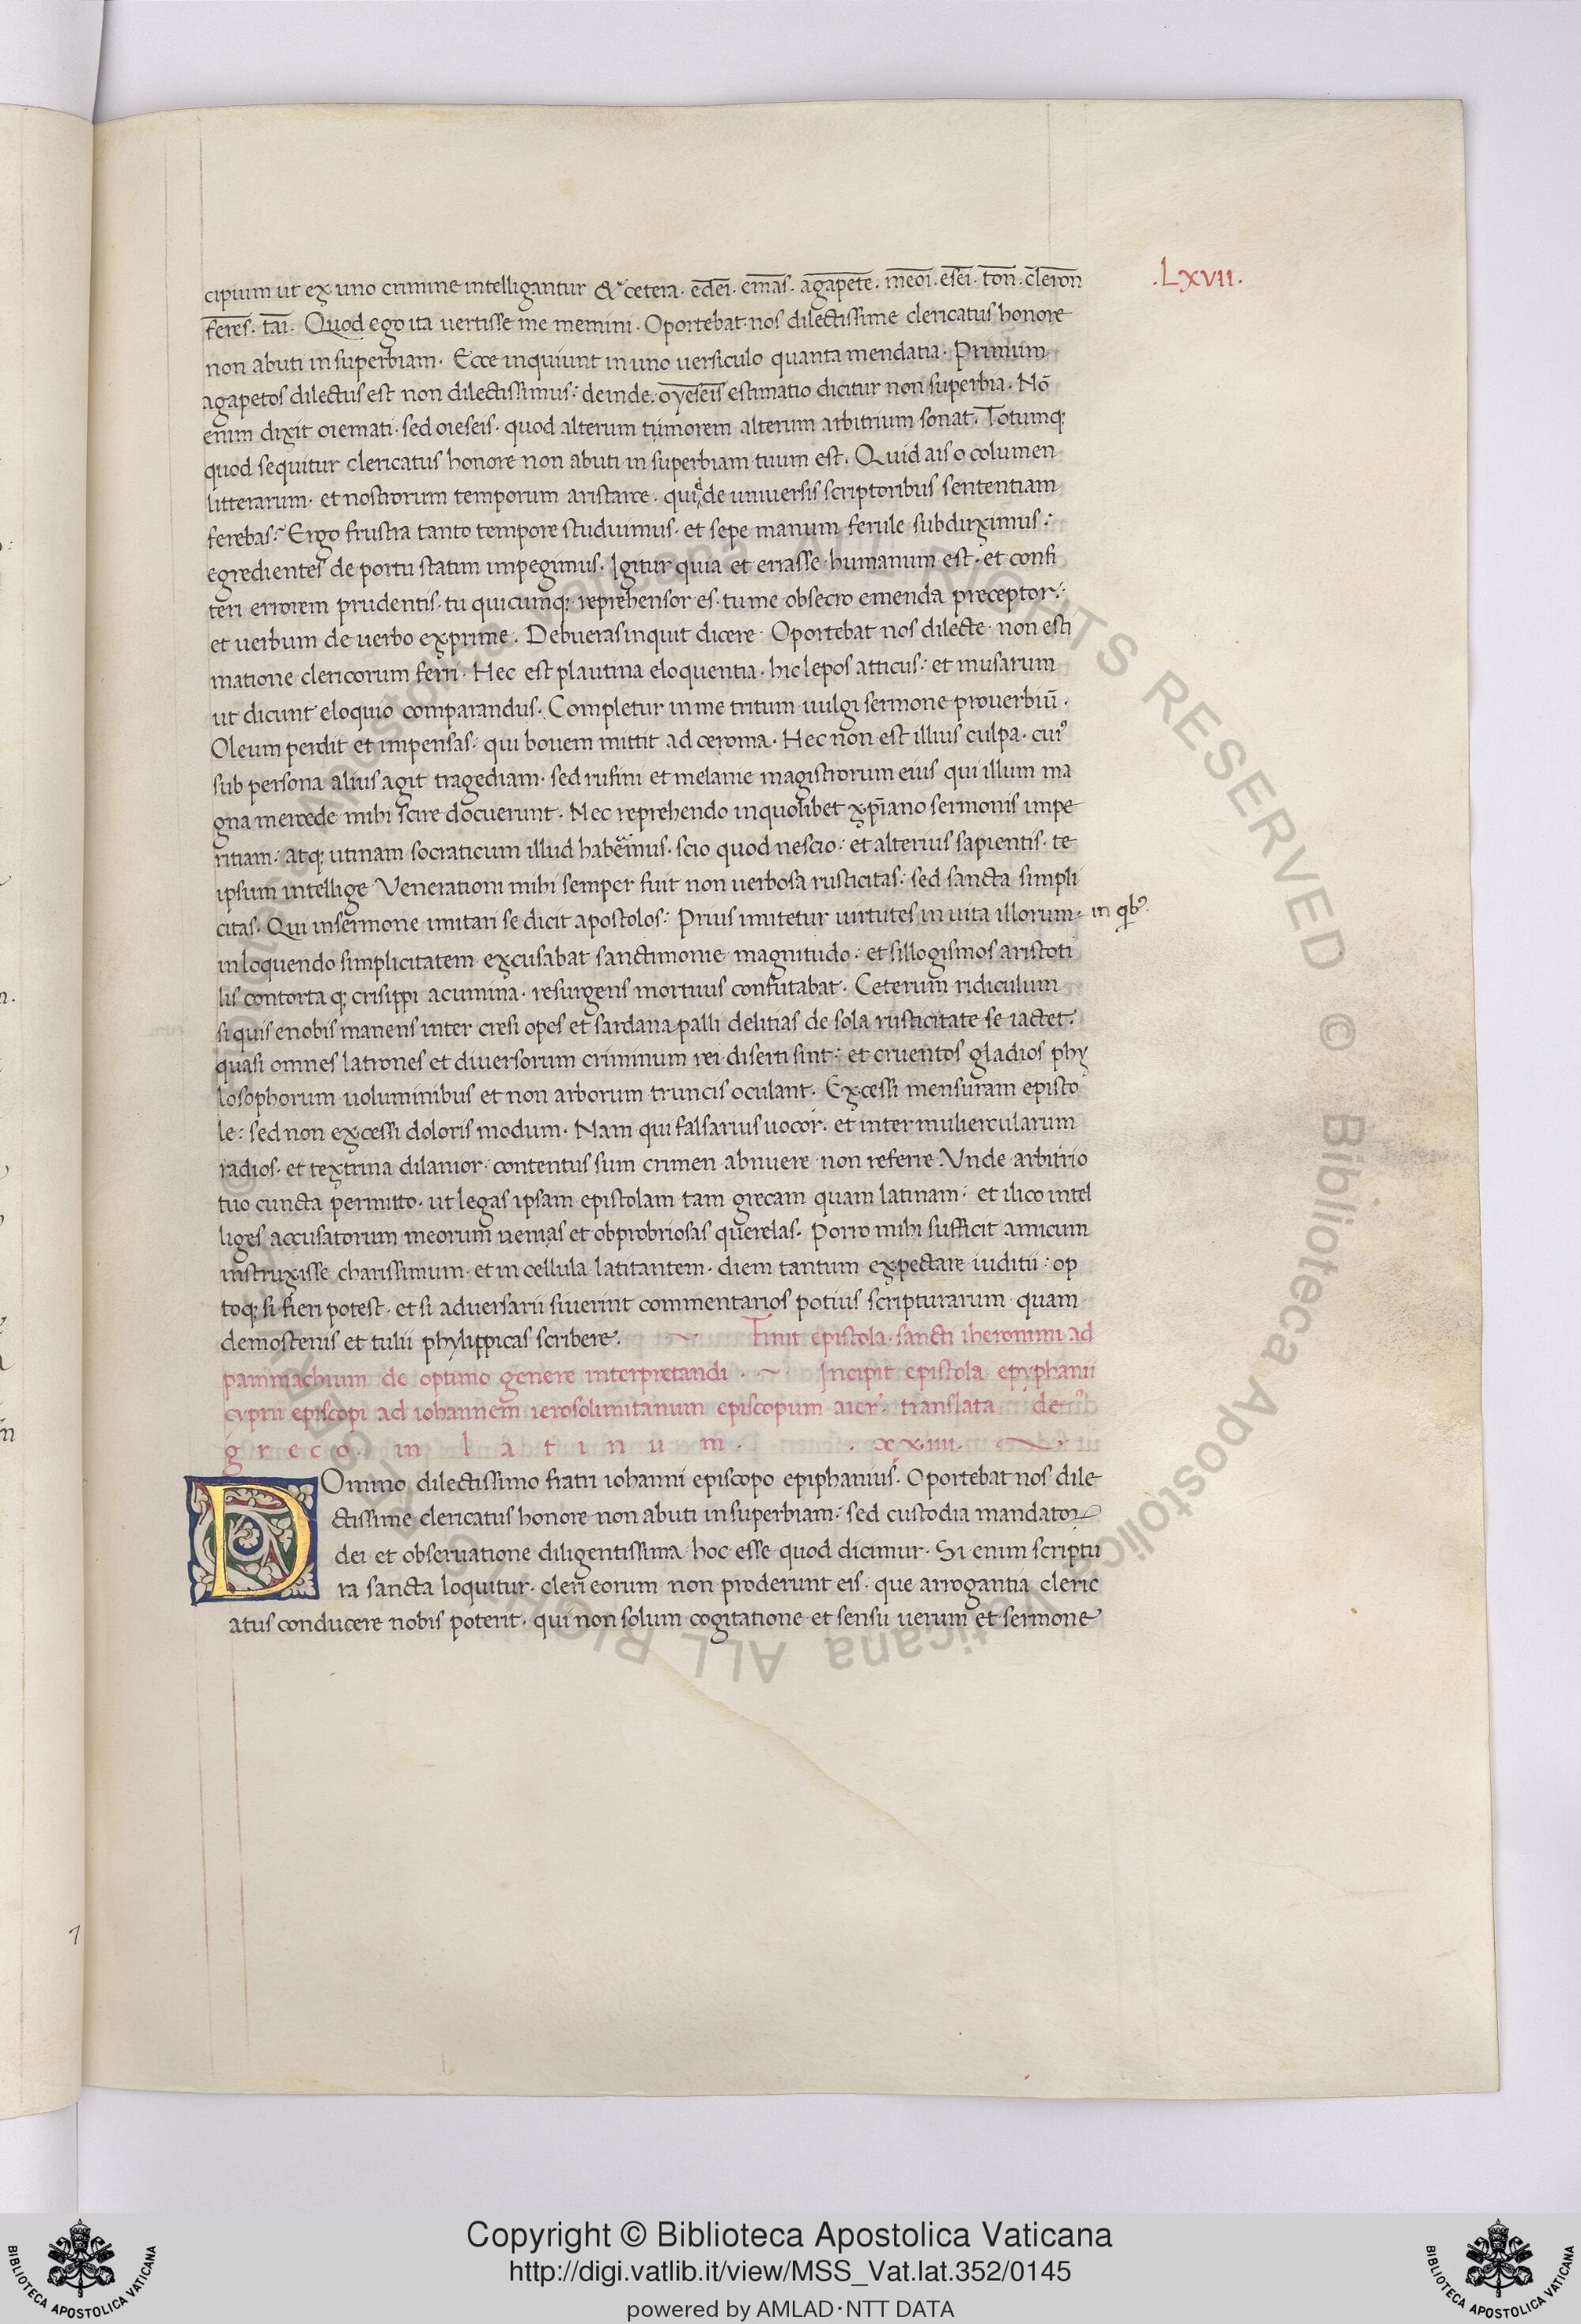 .Lxvii.
cipium ut ex uno crimine intelligantur & cetera. edei. emas. agapete. meoi. esei. ton. cleron
feres. tai. Quod ego ita uertisse me memini. Oportebat nos dilectissime clericatus honore
non abuti in superbiam. Ecce inquiunt in uno uersiculo quanta mendatia. Primum
agapetos dilectus est non dilectissimus: deinde. oyeseis estimatio dicitur non superbia. Nō
enim dixit oiemati. sed oieseis. quod alterum tumorem alterum arbitrium sonat. Totumq;
quod sequitur clericatus honore non abuti in superbiam tuum est. Quid ais o columen
litterarum. et nostrorum temporum aristarce. qui de uniuersis scriptoribus sententiam
ferebas? Ergo frustra tanto tempore studuimus. et sepe manum ferule subduximus:
egredientes de portu statim impegimus. Igitur quia et errasse humanum est. et confi
teri errorem prudentis. tu quicunq; reprehensor es. tu me obsecro emenda preceptor:
et uerbum de uerbo exprime. Debueras inquit dicere. Oportebat nos dilecte non esti
matione clericorum ferri. Hec est plautina eloquentia. hic lepos atticus: et musarum
ut dicunt eloquio comparandus. Completur in me tritum uulgi sermone prouerbiū.
Oleum perdit et impensas: qui bouem mittit ad ceroma. Hec non est illius culpa. cui9
sub persona alius agit tragediam. sed rufini et melanie magistrorum eius qui illum ma
gna mercede nihil scire docuerunt. Nec reprehendo in quolibet xp̄iano sermonis impe
ritiam: atq; utinam socraticum illud haberemus. scio quod nescio: et alterius sapientis. te
ipsum intellige Venerationi mihi semper fuit non uerbosa rusticitas: sed sancta simpli
citas. Qui in sermone imitari se dicit apostolos: Prius imitetur uirtutes in uita illorum. in qb9.
in loquendo simplicitatem excusabat sanctimonie magnitudo: et sillogismos aristoti
lis contorta q; crisippi acumina. resurgens mortuus confutabat. Ceterum ridiculum
si quis e nobis manens inter cresi opes et sardanapalli delitias de sola rusticitate se iactet.
quasi omnes latrones et diuersorum criminum rei diserti sint: et cruentos gladios phy
losophorum uoluminibus et non arborum truncis oculant. Excessi mensuram episto
le: sed non excessi doloris modum. Nam qui falsarius uocor. et inter muliercularum
radios. et textrina dilanior. contentus sum crimen abnuere non referre. Vnde arbitrio
tuo cuncta permitto. ut legas ipsam epistolam tam grecam quam latinam: et ilico intel
liges accusatorum meorum nenias et obprobriosas querelas. Porro mihi sufficit amicum
instruxisse charissimum. et in cellula latitantem. diem tantum expectare iuditii: op
toq; si fieri potest. et si aduersarii siuerint commentarios potius scripturarum quam
demostenis et tulii phylippicas scribere. Finit epistola sancti iheronimi ad
pammachium de optimo genere interpretandi. Incipit epistola epyphanii
cyprii episcopi ad iohannem ierosolimitanum episcopum a ier. translata de
greco. in latinum. .xxiiii.
DOmino dilectissimo fratri iohanni episcopo epiphanius. Oportebat nos dile
ctissime clericatus honore non abuti in superbiam: sed custodia mandatorꝝ
dei et obseruatione diligentissima hoc esse quod dicimur. Si enim scriptu
ra sancta loquitur. cleri eorum non proderunt eis. que arrogantia cleric
atus conducere nobis poterit. qui non solum cogitatione et sensu uerum et sermone
Copyright © Biblioteca Apostolica Vaticana
http://digi.vatlib.it/view/MSS_Vat.lat.352/0145
powered by AMLAD·NTT DATA
BIBLIOTECA APOSTOLICA VATICANA
BIBLIOTECA APOSTOLICA VATICANA